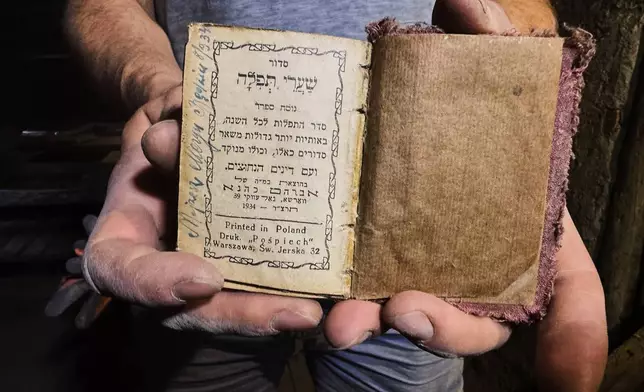 סדור
שַׁעֲרֵי תְּפִלָּה
נוסח ספרד
סדר התפלות לכל השנה,
באותיות יותר גדולות משאר
סדורים כאלו, וכולו מנוקד
ועם דינים הנחוצים.
בהוצאת במ״ה של
אברהם כהנא
ווארשא, נאלעווקי 39
תרצ״ד — 1934
Printed in Poland
Druk. „Pośpiech”
Warszawa, Św. Jerska 32